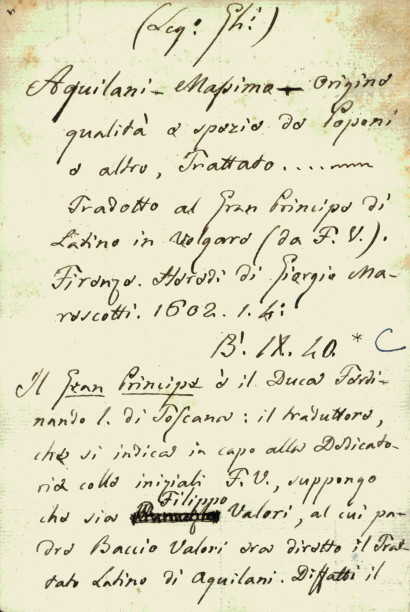 (Leg.º Gh.i)
Aquilani - Massimo - Origine
qualità e spezie de Poponi
e altro, Trattato ........
Tradotto al Gran Principe di
Latino in Volgare (da F. V.).
Firenze. Heredi di Giorgio Ma-
rescotti. 1602. 1. 4:
B.i IX. 40. * C
Il Gran Principe è il Duca Ferdi-
nando I. di Toscana: il traduttore,
che si indica in capo alla Dedicato-
ria colle iniziali F. V., suppongo
che sia Filippo Valori, al cui pa-
dre Baccio Valori era diretto il Trat-
tato Latino di Aquilani. Diffatti il